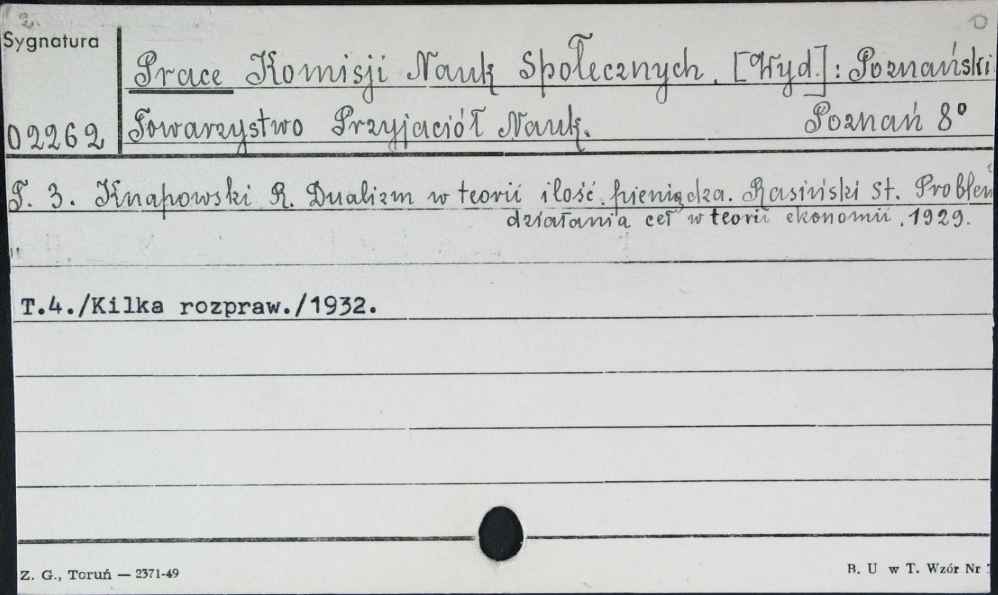 2.
Sygnatura
Prace Komisji Nauk Społecznych. [Wyd.]: Poznański
02262 Towarzystwo Przyjaciół Nauk. Poznań 8°
T. 3. Knapowski R. Dualizm w teorii ilość. pieniądza. Rasiński St. Problem
działania ceł w teorii ekonomii, 1929.
"
T.4./Kilka rozpraw./1932.
Z. G., Toruń — 2371-49
B. U w T. Wzór Nr